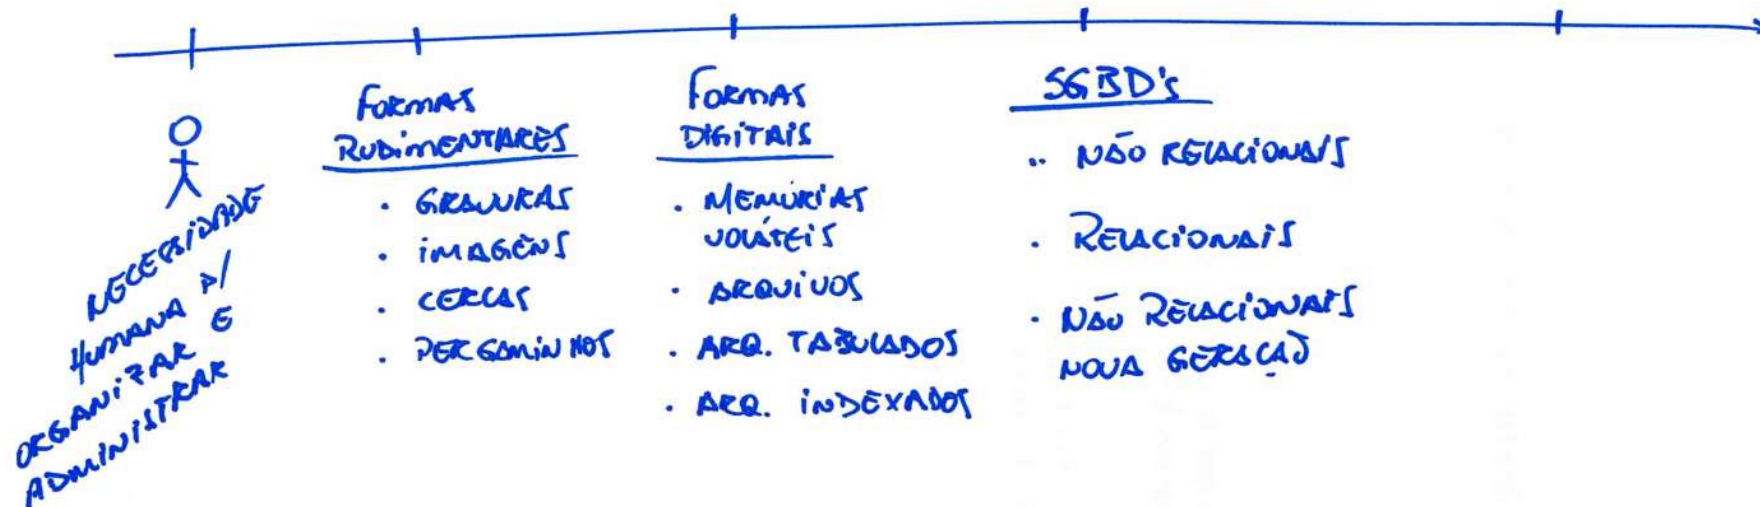 NECESSIDADE
HUMANA P/
ORGANIZAR E
ADMINISTRAR
FORMAS
RUDIMENTARES
. GRAVURAS
. IMAGENS
. CERCAS
. PERGAMINHOS
FORMAS
DIGITAIS
. MEMÓRIAS
VOLÁTEIS
. ARQUIVOS
. ARQ. TABULADOS
. ARQ. INDEXADOS
SGBD's
.. NÃO RELACIONAIS
. RELACIONAIS
. NÃO RELACIONAIS
NOVA GERAÇÃO